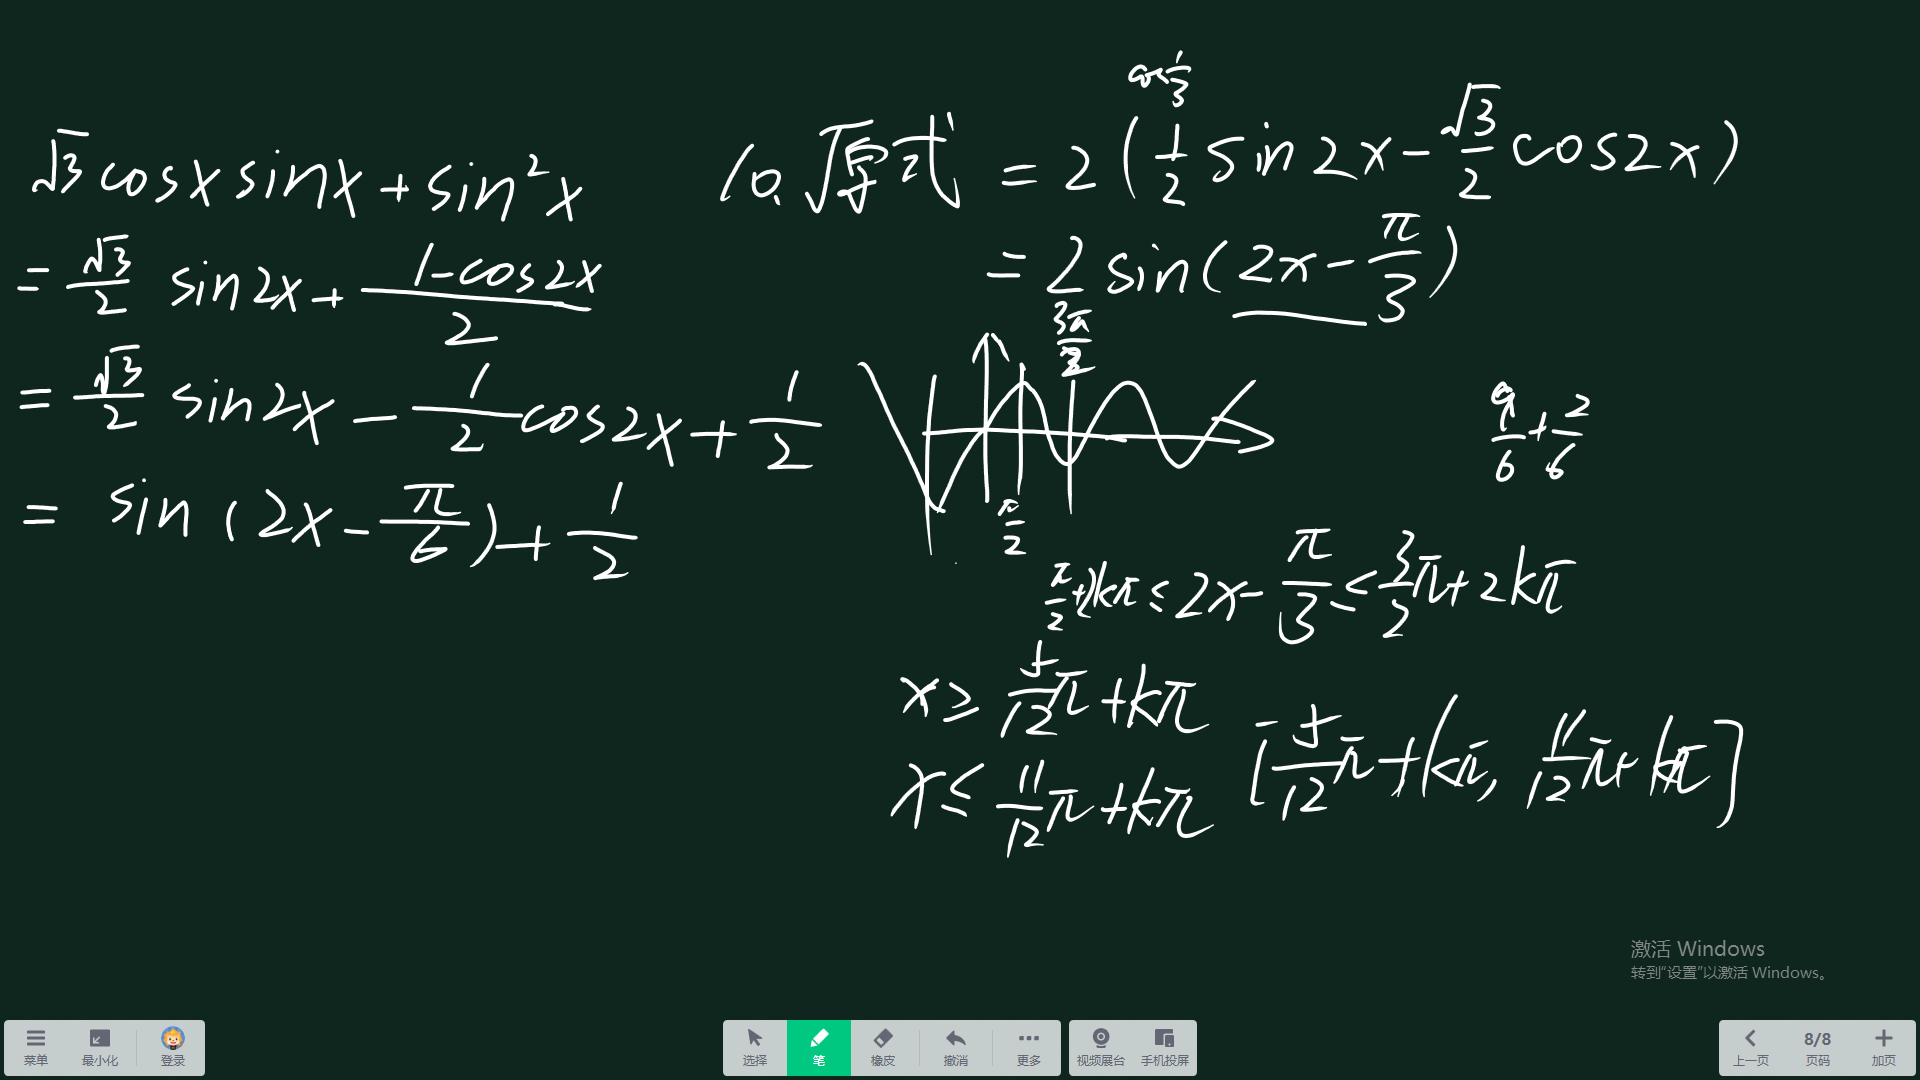 √3 cosx sinx + sin²x
= √3/2 sin2x + (1-cos2x)/2
= √3/2 sin2x - 1/2 cos2x + 1/2
= sin(2x - π/6) + 1/2
10. 原式 = 2(1/2 sin2x - √3/2 cos2x)
= 2 sin(2x - π/3)
3π/2
π/2
9/6 + 2/6
π/2 + 2kπ ≤ 2x - π/3 ≤ 3/2 π + 2kπ
x ≥ 5/12 π + kπ
x ≤ 11/12 π + kπ
[5/12 π + kπ, 11/12 π + kπ]
激活 Windows
转到“设置”以激活 Windows。
菜单 最小化 登录 选择 笔 橡皮 撤消 更多 视频展台 手机投屏 上一页 8/8 页码 加页